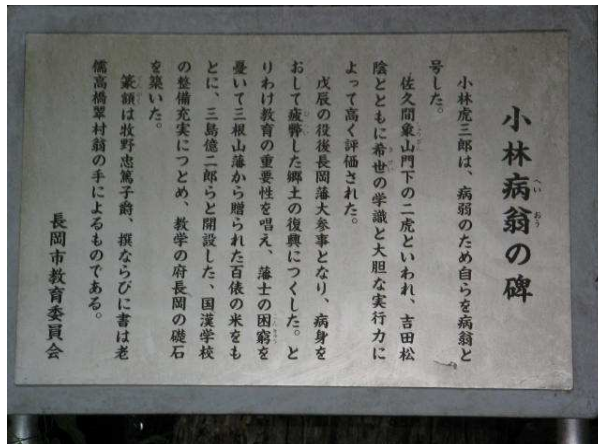 小林病翁の碑
小林虎三郎は、病弱のため自らを病翁と
号した。
佐久間象山門下の二虎といわれ、吉田松
陰とともに希世の学識と大胆な実行力に
よって高く評価された。
戊辰の役後長岡藩大参事となり、病身を
おして疲弊した郷土の復興につくした。と
りわけ教育の重要性を唱え、藩士の困窮を
憂いて三根山藩から贈られた百俵の米をも
とに、三島億二郎らと開設した、国漢学校
の整備充実につとめ、教学の府長岡の礎石
を築いた。
篆額は牧野忠篤子爵、撰ならびに書は老
儒高橋翠村翁の手によるものである。
長岡市教育委員会